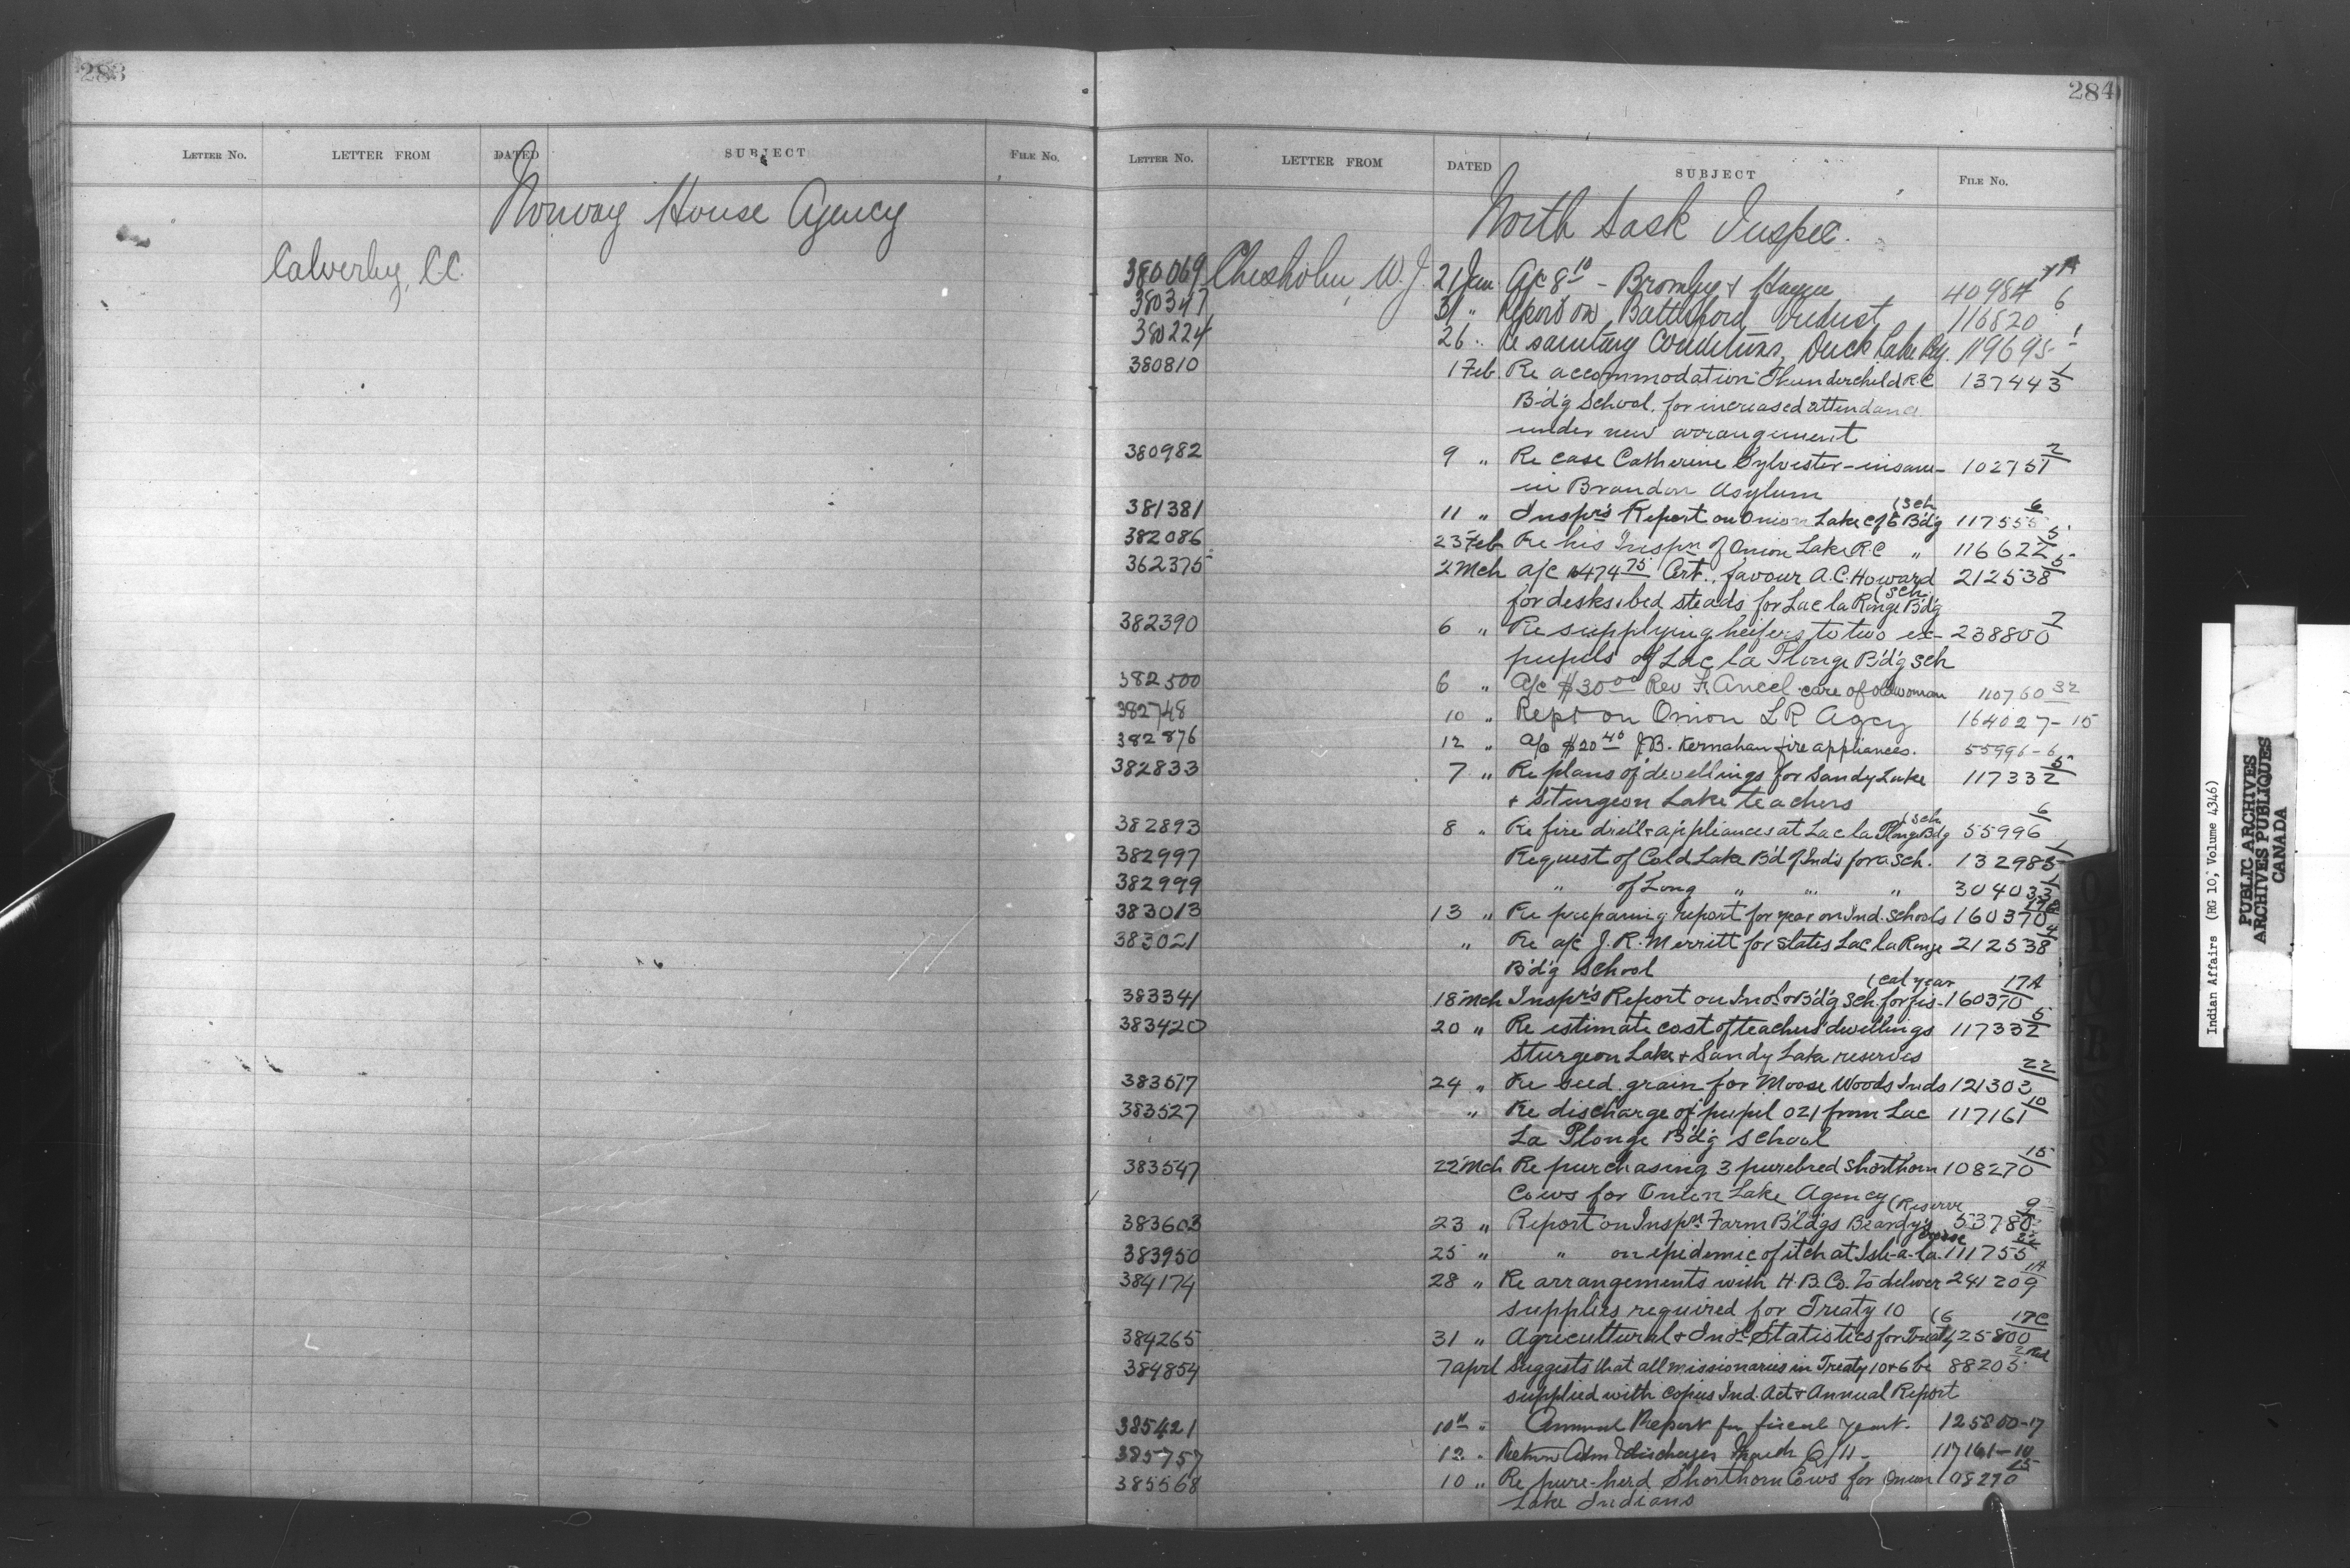 283
LETTER NO. LETTER FROM DATED SUBJECT FILE No.
Norway House Agency
Calverley, C.C.
284
LETTER NO. LETTER FROM DATED SUBJECT FILE No.
North Sask Inspec.
380069 Chisholm, W. J. 21 Jan A/c 8.10 - Bromley & 40984 1A
380347 31 " Report on Battleford Indust 116820 6
380224 26 " Re sanitary Conditions, Duck Lake Agy. 119695 1
380810 1 Feb Re accommodation Thunderchild R.C 137443 1
B'd'g School, for increased attendance
under new arrangement
380982 9 " Re case Catherine Sylvester - insane - 102751 2
in Brandon Asylum
381381 11 " Inspr's Report on Onion Lake C of E B'd'g (Sch 117555 6
382086 23 Feb Re his Inspn of Onion Lake R.C " 116622 5
362375 2 Mch a/c $474.75 Cert., favour A.C. Howard 212538 5
for desks & bed steads for Lac la Ronge B'd'g (Sch.
382390 6 " Re supplying heifers to two ex- 238800 7
pupils of Lac la Plonge B'd'g Sch
382500 6 " A/c $30.00 Rev Fr. Ancel care of old woman 110760 32
382748 10 " Rept on Onion L R Agcy 164027 - 15
382876 12 " A/c $20.40 J.B. Kernahan fire appliances. 55996 - 6
382833 7 " Re plans of dwellings for Sandy Lake 117332 5
+ Sturgeon Lake teachers
382893 8 " Re fire drill & appliances at Lac la Plonge Bdg (Sch 55996 6
382997 Request of Cold Lake B'd of Ind's for a Sch. 132985 1
382999 " of Long " " " 304033 1
383013 13 " Re preparing report for year on Ind. Schools 160370 17A
383021 " Re a/c J. R. Merritt for slates Lac la Ronge 212538 4
B'd'g School
383341 18 Mch Inspr's Report on Ind. & B'd'g Sch. for fis- (cal year 160370 17A
383420 20 " Re estimate cost of teachers' dwellings 117332 5
Sturgeon Lake & Sandy Lake reserves
383517 24 " Re seed grain for Moose Woods Inds 121303 22
383527 " Re discharge of pupil 021 from Lac 117161 10
La Plonge B'd'g School
383547 22 Mch Re purchasing 3 purebred shorthorn 108270 15
Cows for Onion Lake Agency
383603 23 " Report on Inspn Farm Bldgs Beardy's (Reserve 53780 9
383950 25 " " on epidemic of itch at Isle-a-la Crosse 111755 22
384174 28 " Re arrangements with H. B. Co. to deliver 241209 1A
supplies required for Treaty 10
384265 31 " Agricultural & Ind'l Statistics for Treaty (6 125800 17C
384854 7 April Suggests that all missionaries in Treaty 10 & 6 be 88205 2 Red
supplied with copies Ind. Act & Annual Report
385421 10th " Annual Report for fiscal year. 125800-17
385757 12 " Return Adm & discharges March Q/11 - 117161-10
385568 10 " Re pure-herd Shorthorn Cows for Onion 108270 15
Lake Indians
Indian Affairs (RG 10, Volume 4346)
PUBLIC ARCHIVES
ARCHIVES PUBLIQUES
CANADA